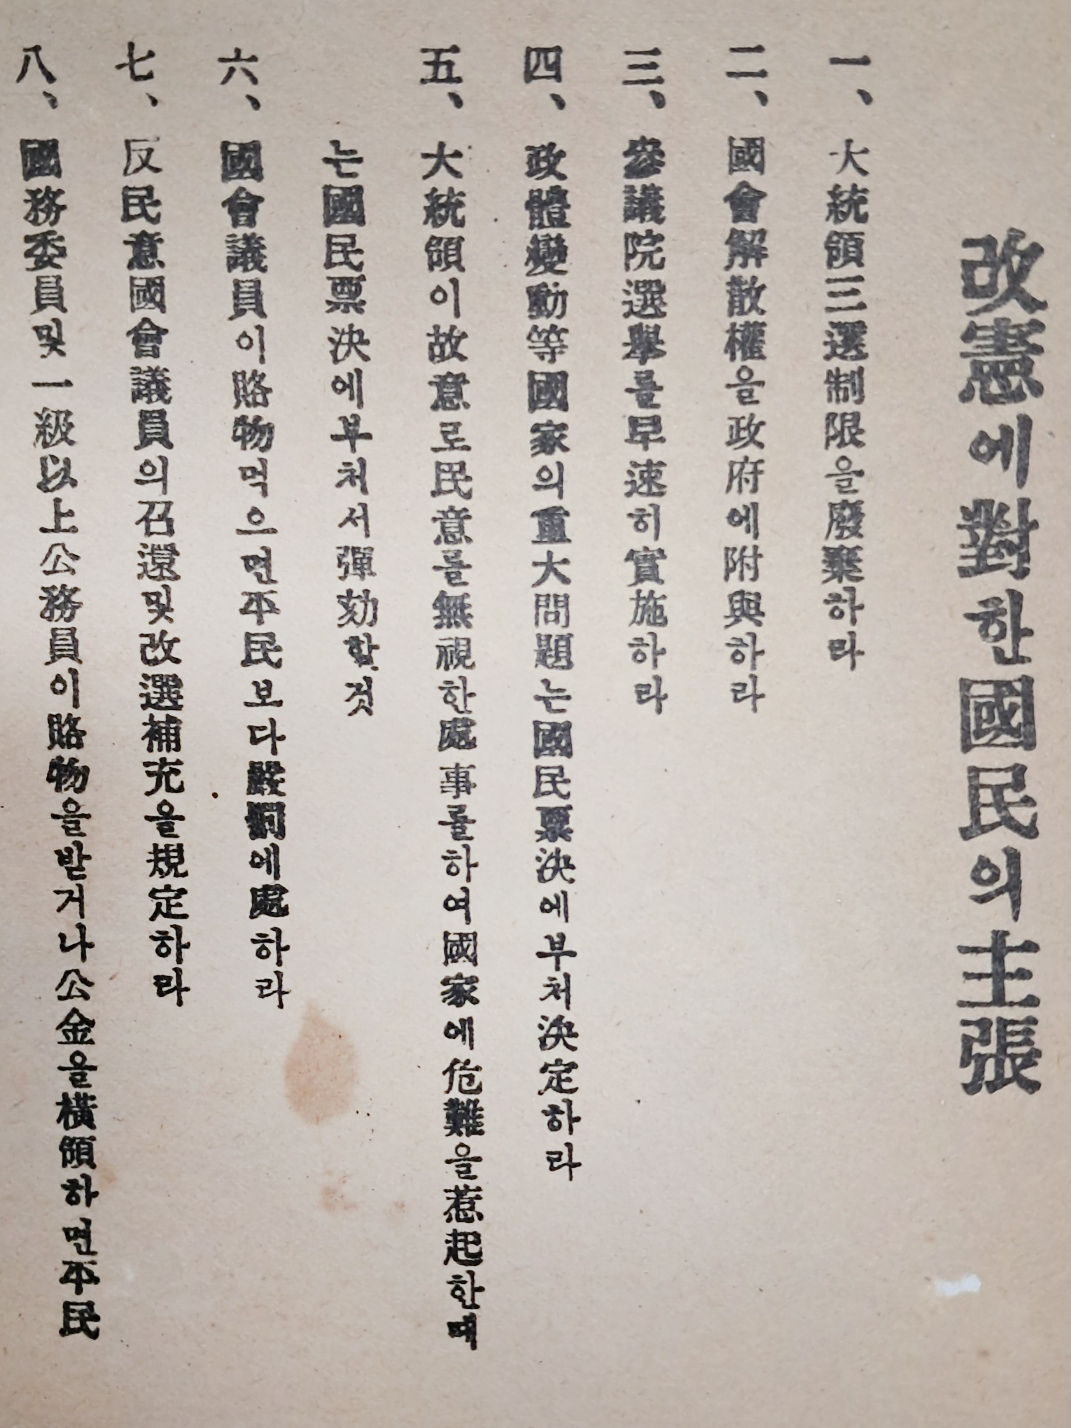 改憲에對한國民의主張
一、大統領三選制限을廢棄하라
二、國會解散權을政府에附與하라
三、參議院選擧를早速히實施하라
四、政體變動等國家의重大問題는國民票決에부처決定하라
五、大統領이故意로民意를無視한處事를하여國家에危難을惹起한때
는國民票決에부처서彈劾할것
六、國會議員이賂物먹으면平民보다嚴罰에處하라
七、反民意國會議員의召還및改選補充을規定하라
八、國務委員및一級以上公務員이賂物을받거나公金을橫領하면平民